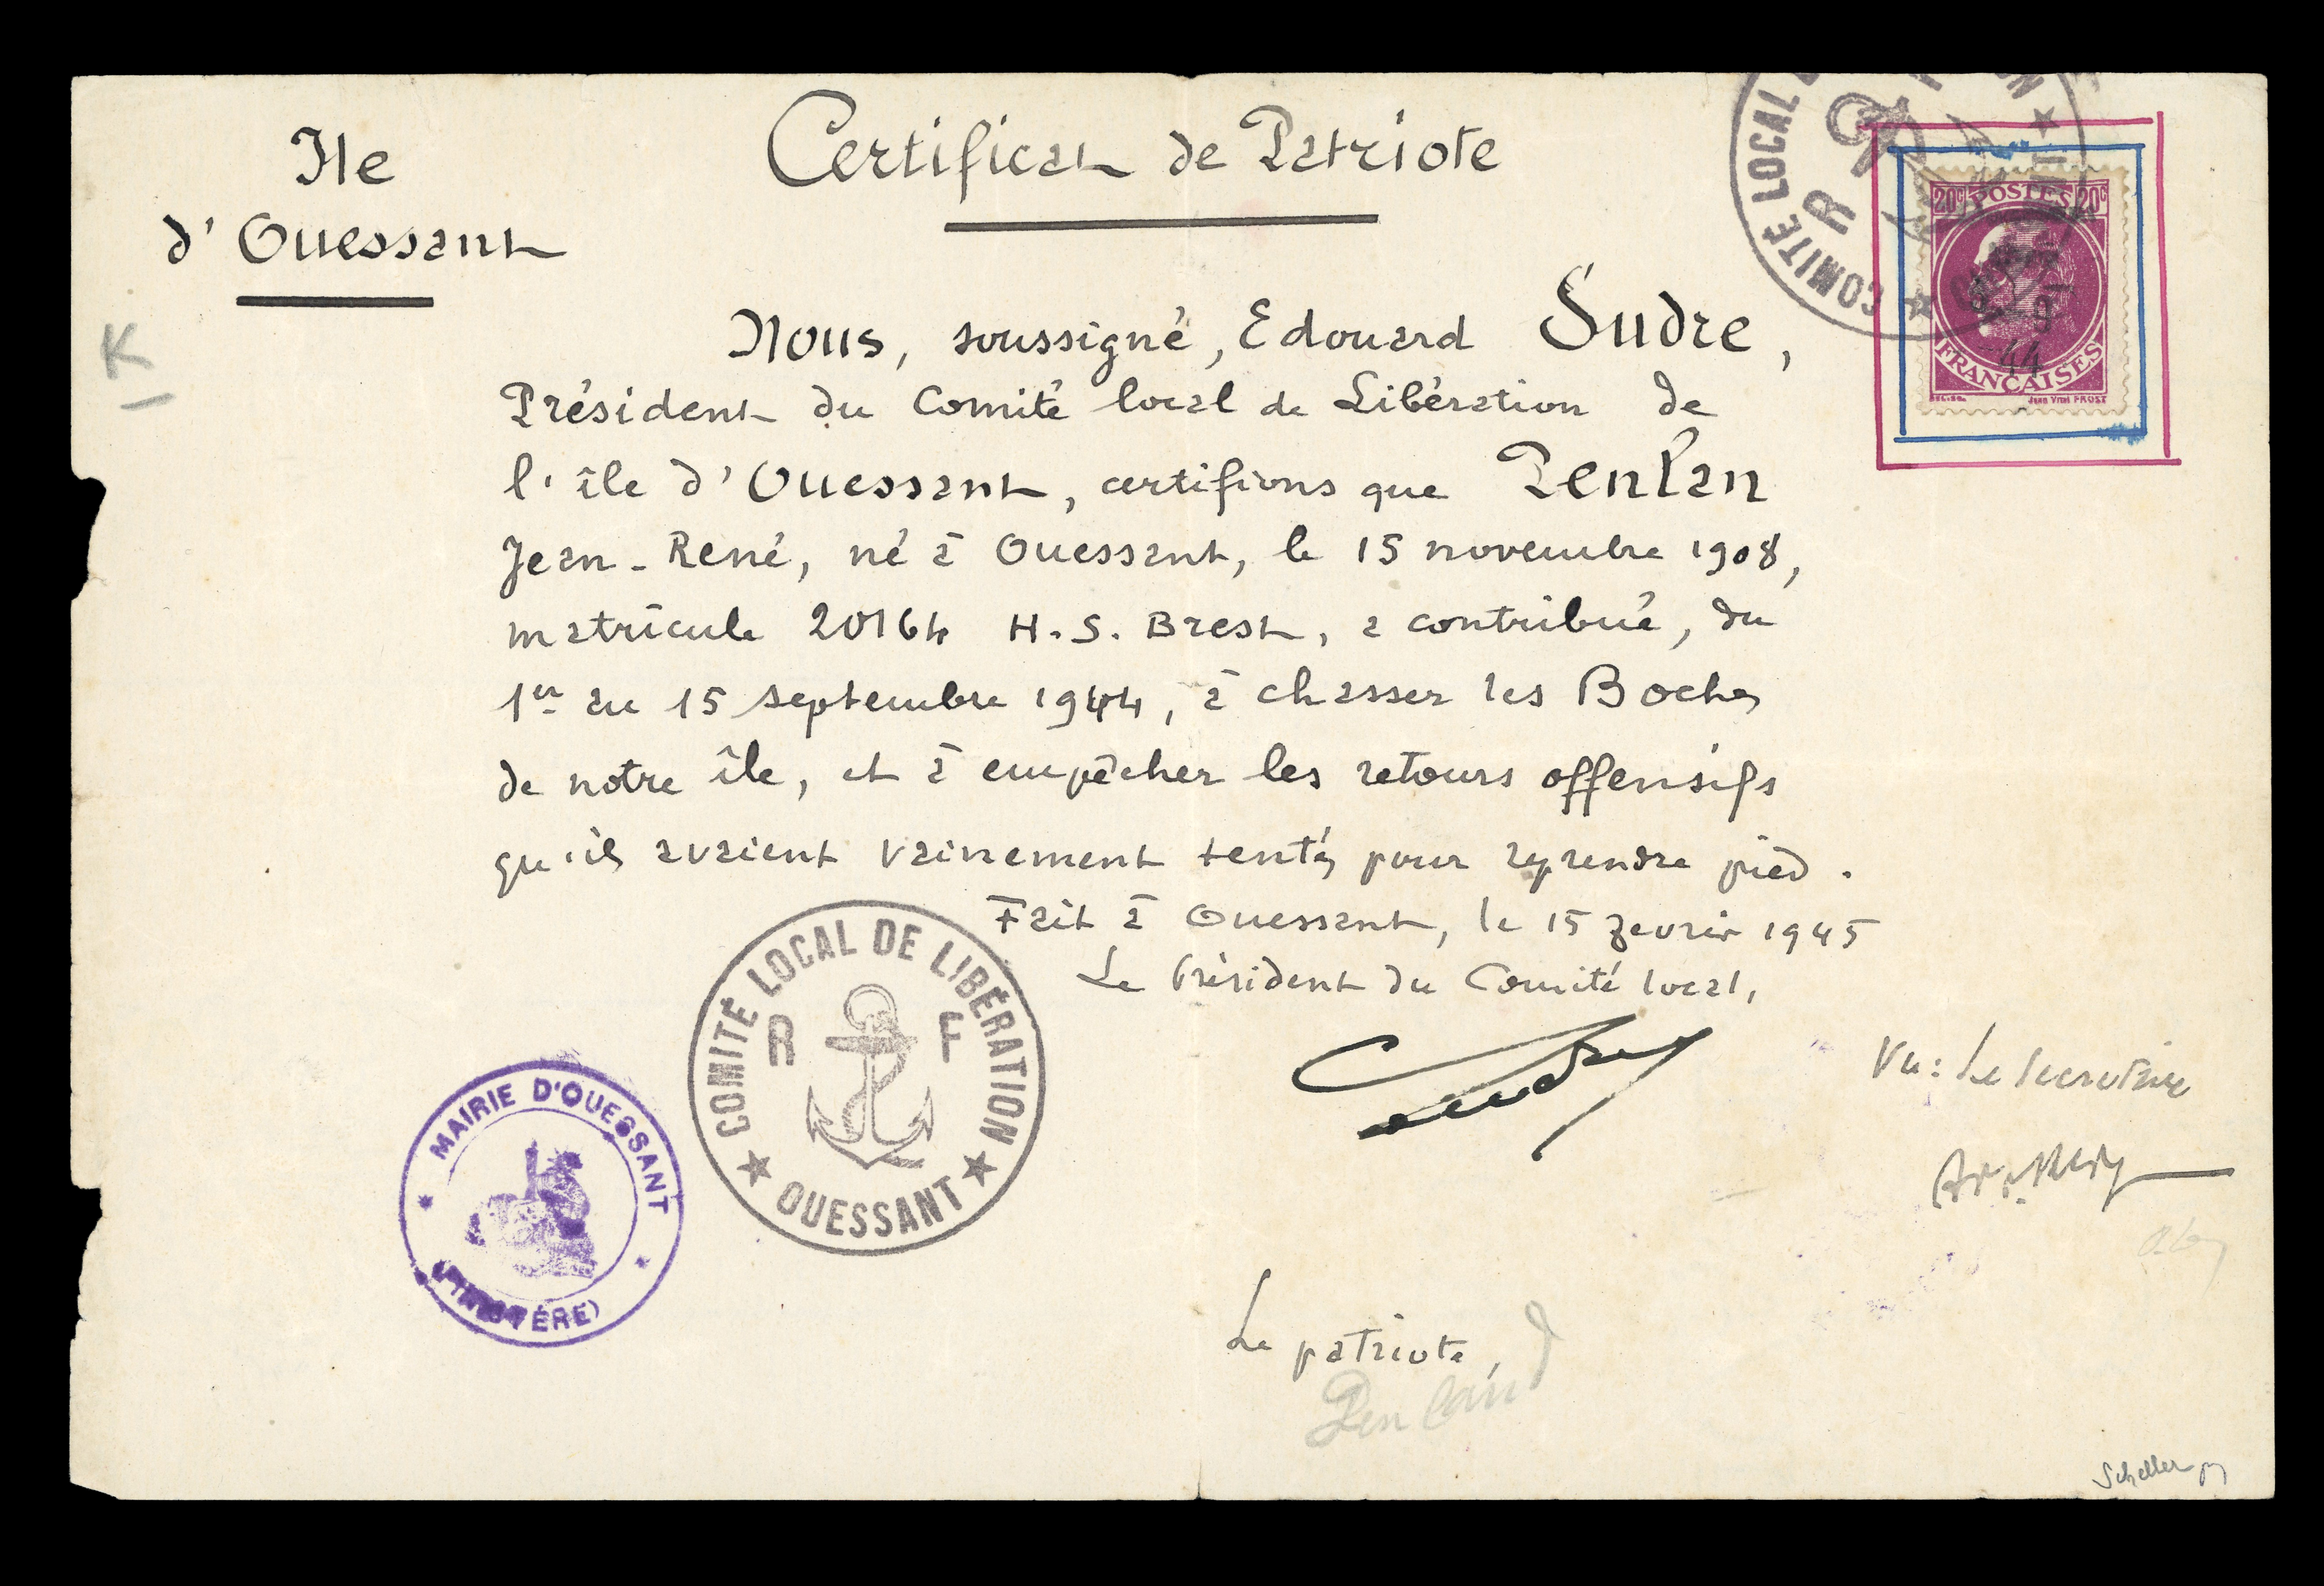 Ile
d'Ouessant
Certificat de Patriote
K
COMITÉ LOCAL
R
20c POSTES 20c
FRANÇAISES
44
Nous, soussigné, Edouard Sudre,
Président du Comité local de Libération de
l'île d'Ouessant, certifions que Penlan
Jean-René, né à Ouessant, le 15 novembre 1908,
matricule 20164 H.S. Brest, a contribué, du
1er au 15 septembre 1944, à chasser les Boches
de notre île, et à empêcher les retours offensifs
qu'ils avaient vainement tentés pour reprendre pied.
Fait à Ouessant, le 15 février 1945
Le Président du Comité local,
Sudre
COMITÉ LOCAL DE LIBÉRATION
R F
★ OUESSANT ★
MAIRIE D'OUESSANT
(FINISTÈRE)
Vu : Le Secrétaire
Le patriote,
Penland
Scheller